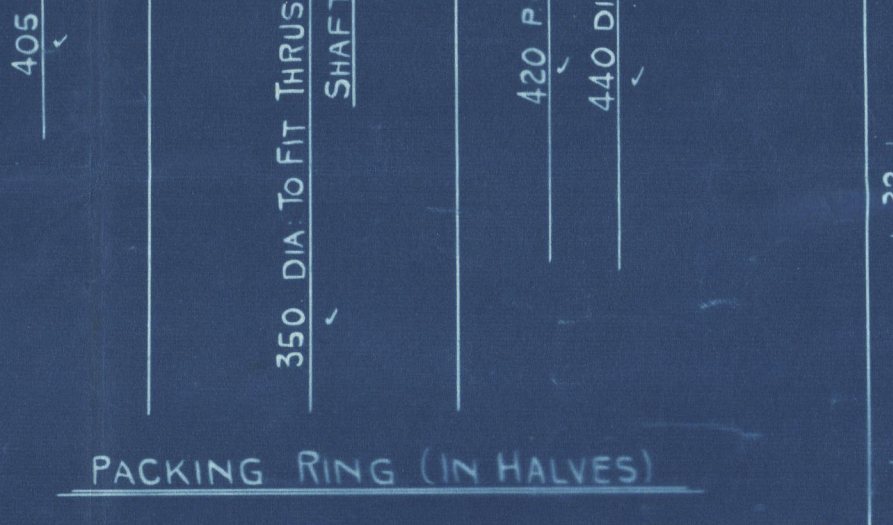 405
350 DIA: TO FIT THRUS
SHAFT
420 P.
440 DI
PACKING RING (IN HALVES)